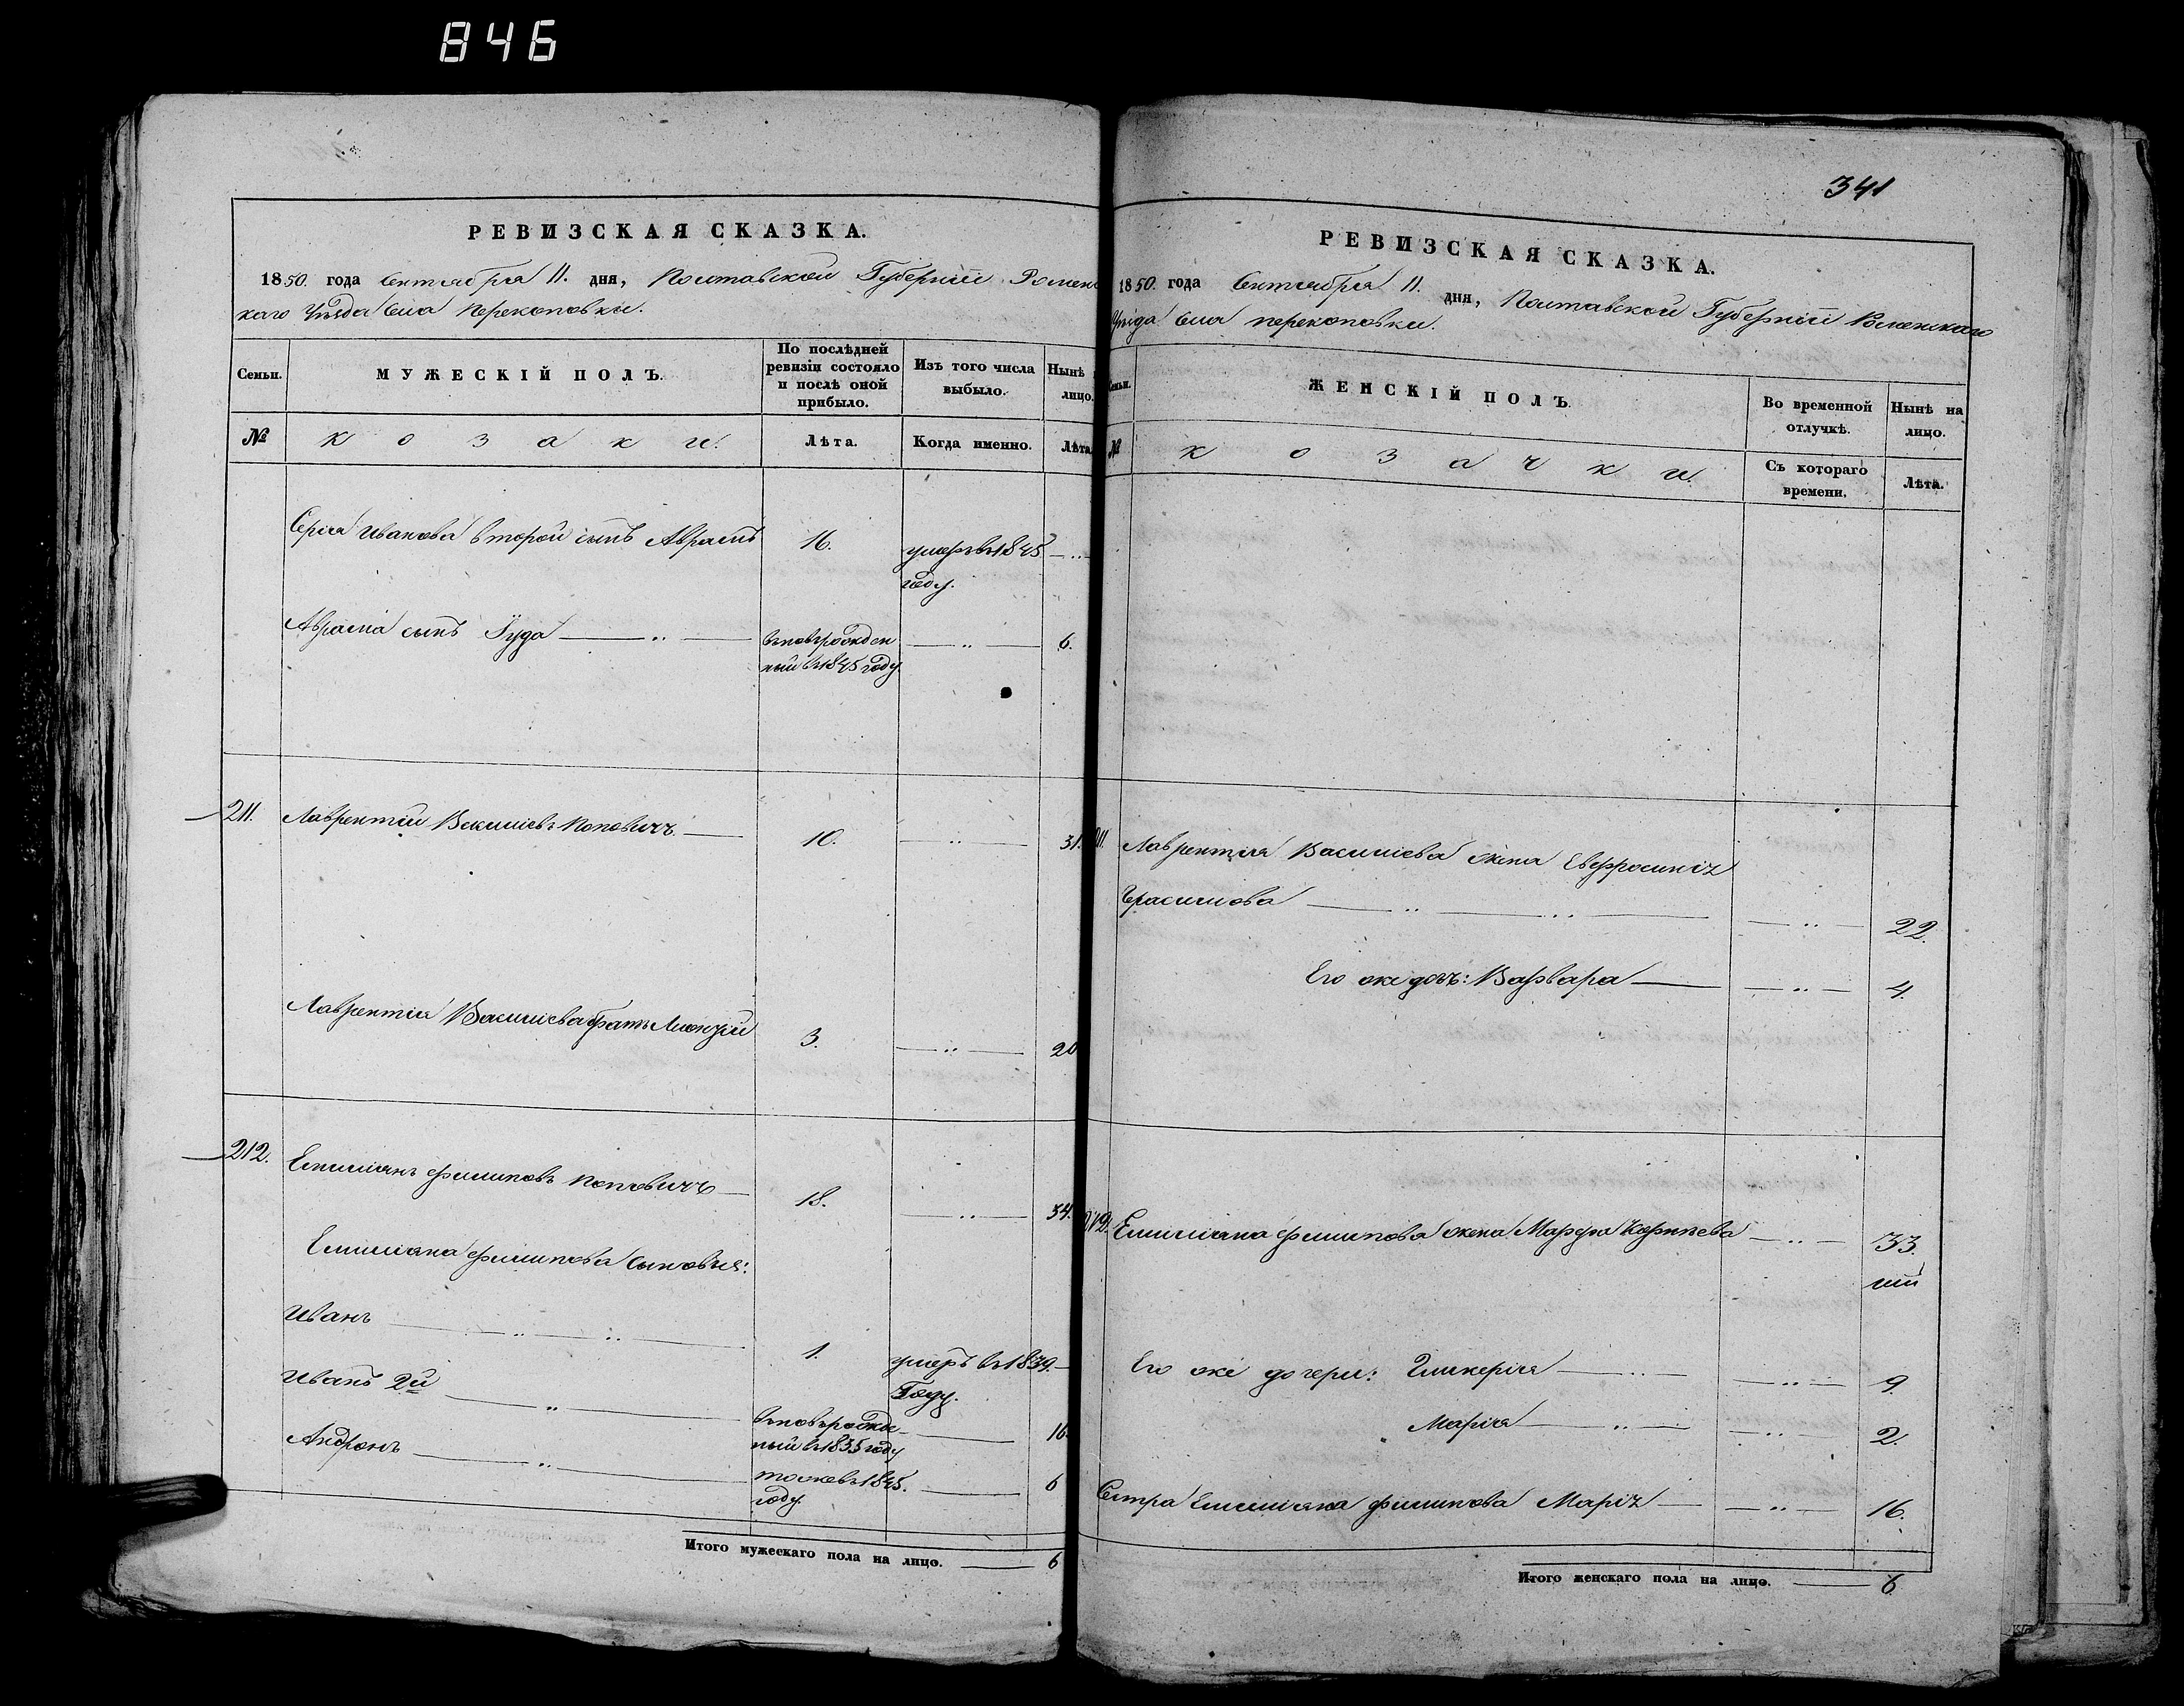 846
РЕВИЗСКАЯ СКАЗКА.
1850. года Сентября 11. дня, Полтавской Губерніи Роменс
каго Уѣзда Села Перекоповки.
Семьи.
МУЖЕСКІЙ ПОЛЪ.
По послѣдней
ревизіи состояло
и послѣ оной
прибыло.
Изъ того числа
выбыло.
Нынѣ
лицо.
№
козаки.
Лѣта.
Когда именно.
Лѣта
Сергія Иванова второй сынъ Аврамъ 16. умеръ въ 1845
году.
Аврама сынъ Іуда вновьрожден 6.
ный въ 1845 году.
211. Лаврентій Василіевъ Поповичъ 10. 31.
Лаврентія Василіева братъ 3. 20
212. Емиліянъ Филиповъ Поповичъ 18. 34.
Емиліяна Филипова сыновья:
Иванъ 1. умеръ въ 1839.
Году.
Иванъ 2й вновьрожде 16.
ный въ 1835 году
Андронъ тоже въ 1845. 6
году.
Итого мужескаго пола на лицо. 6
341
РЕВИЗСКАЯ СКАЗКА.
1850. года Сентября 11. дня, Полтавской Губерніи Роменскаго
Уѣзда Села Перекоповки.
Семьи.
ЖЕНСКІЙ ПОЛЪ.
Во временной
отлучкѣ.
Нынѣ на
лицо.
№
козачки.
Съ котораго
времени.
Лѣта.
211. Лаврентія Василіева жена Евфросинія
Герасимова 22.
Его же дочь: Варвара 4.
212. Емиліяна Филипова жена Марфа Корнѣева 33.
Его же дочери: Гликерія 9
Марія 2.
Сестра Емиліяна Филипова Марія 16.
Итого женскаго пола на лицо. 6.